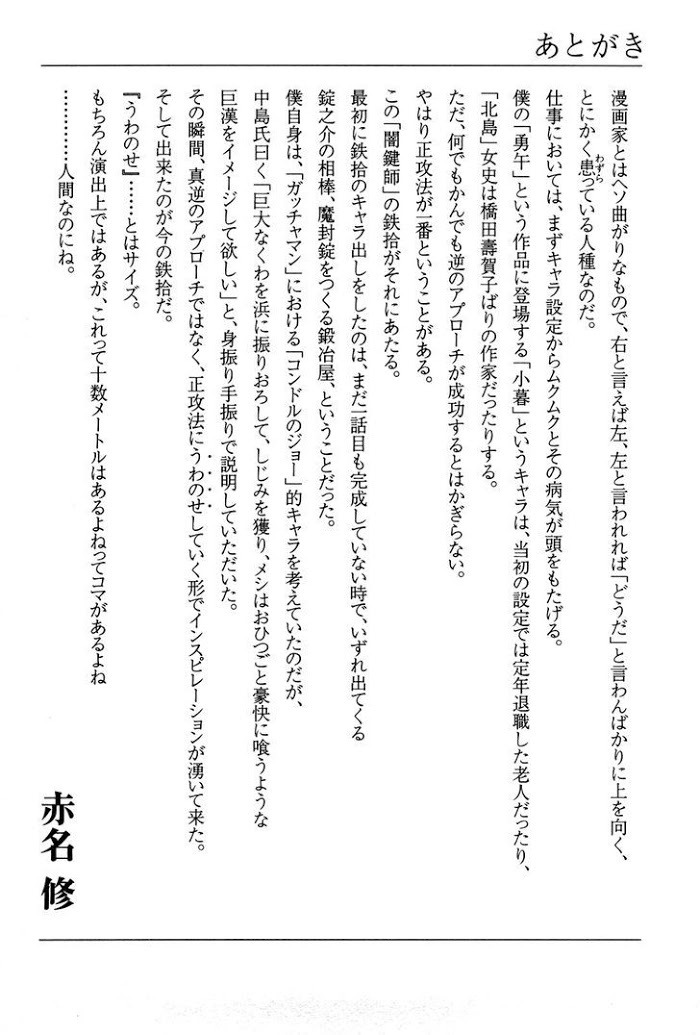 あとがき
漫画家とはヘソ曲がりなもので、右と言えば左、左と言われれば「どうだ」と言わんばかりに上を向く、
とにかく患っている人種なのだ。
わずら
仕事においては、まずキャラ設定からムクムクとその病気が頭をもたげる。
僕の「勇午」という作品に登場する「小暮」というキャラは、当初の設定では定年退職した老人だったり、
「北島」女史は橋田壽賀子ばりの作家だったりする。
ただ、何でもかんでも逆のアプローチが成功するとはかぎらない。
やはり正攻法が一番ということがある。
この「闇鍵師」の鉄拾がそれにあたる。
最初に鉄拾のキャラ出しをしたのは、まだ一話目も完成していない時で、いずれ出てくる
錠之介の相棒、魔封錠をつくる鍛冶屋、ということだった。
僕自身は、「ガッチャマン」における「コンドルのジョー」的キャラを考えていたのだが、
中島氏曰く「巨大なくわを浜に振りおろして、しじみを獲り、メシはおひつごと豪快に喰うような
巨漢をイメージして欲しい」と、身振り手振りで説明していただいた。
その瞬間、真逆のアプローチではなく、正攻法にうわのせしていく形でインスピレーションが湧いて来た。
そして出来たのが今の鉄拾だ。
『うわのせ』……とはサイズ。
もちろん演出上ではあるが、これって十数メートルはあるよねってコマがあるよね
…………人間なのにね。
赤名 修